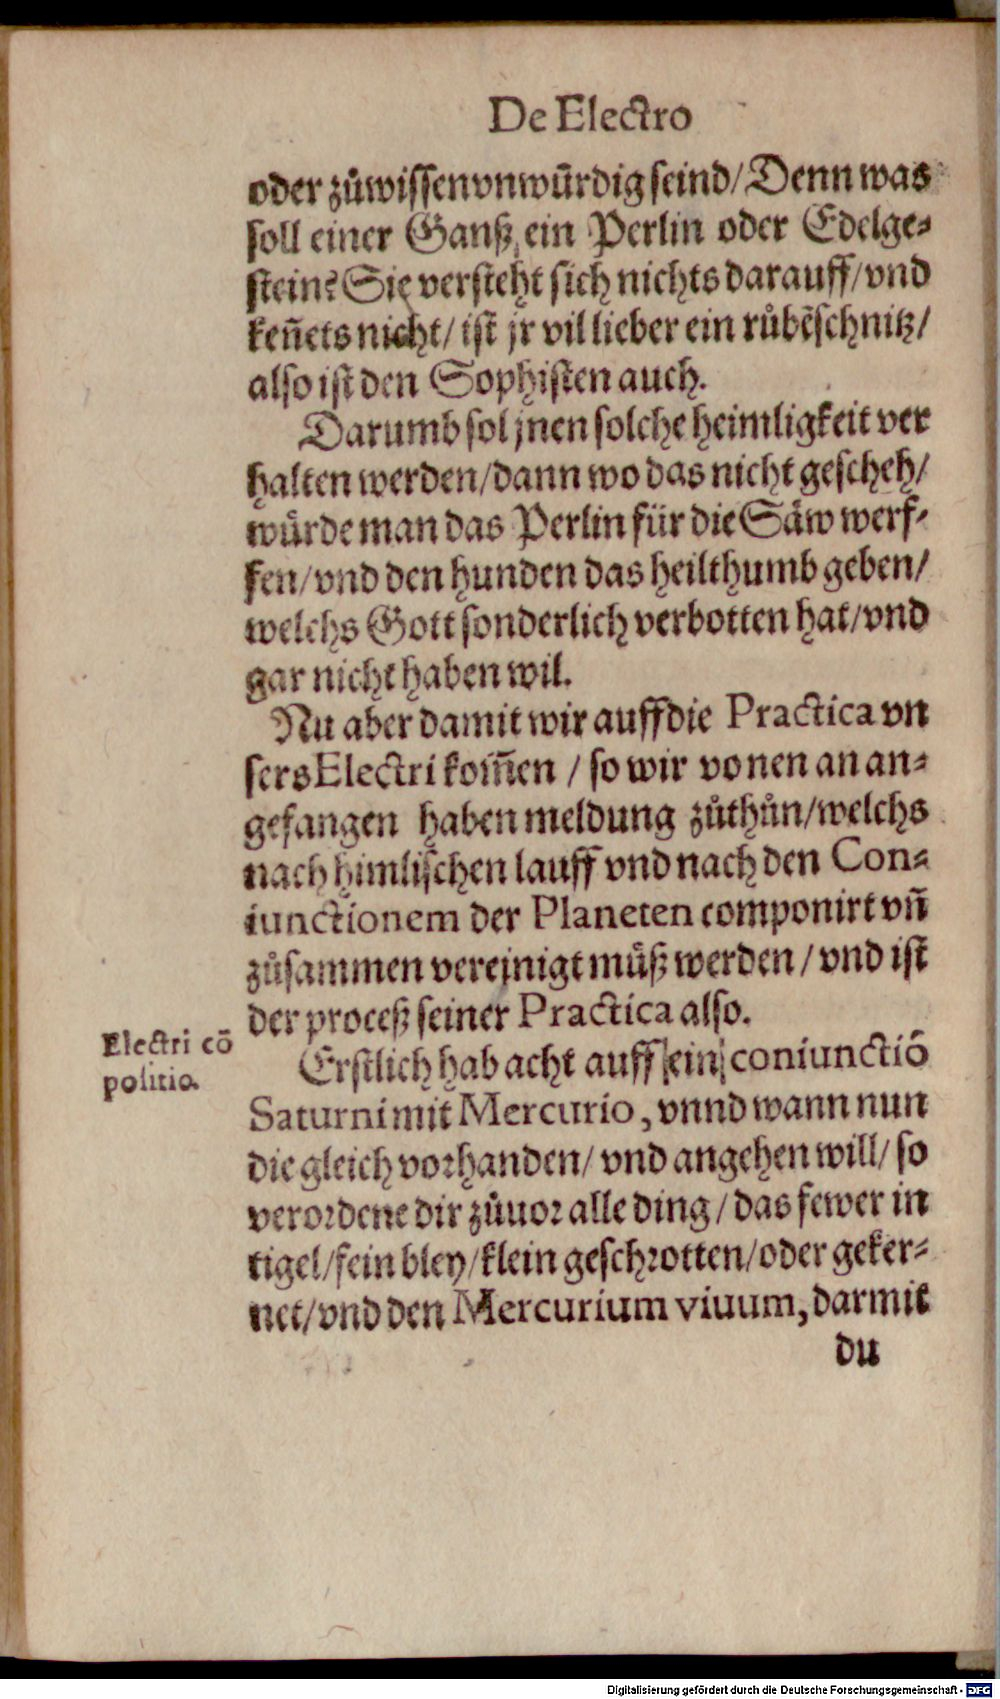 De Electro
oder zůwissen vnwürdig seind/ Denn was
soll einer Ganß ein Perlin oder Edelge⸗
stein? Sie versteht sich nichts darauff/ vnd
keñets nicht/ ist jr vil lieber ein růbẽschnitz/
also ist den Sophisten auch.
Darumb sol jnen solche heimligkeit ver
halten werden/ dann wo das nicht gescheh/
würde man das Perlin für die Säw werf⸗
fen/ vnd den hunden das heilthumb geben/
welchs Gott sonderlich verbotten hat/ vnd
gar nicht haben wil.
Nu aber damit wir auff die Practica vn
sers Electri kom̃en / so wir vonen an an⸗
gefangen haben meldung zůthůn/ welchs
nach himlischen lauff vnd nach den Con⸗
iunctionem der Planeten componirt vñ
zůsammen vereinigt můß werden / vnd ist
der proceß seiner Practica also.
Electri cō
positio.
Erstlich hab acht auff ein coniunctiō
Saturni mit Mercurio, vnnd wann nun
die gleich vorhanden/ vnd angehen will/ so
verordene dir zůuor alle ding / das fewer in
tigel/ fein bley/ klein geschrotten/ oder geker⸗
net/ vnd den Mercurium viuum, darmit
du
Digitalisierung gefördert durch die Deutsche Forschungsgemeinschaft - DFG